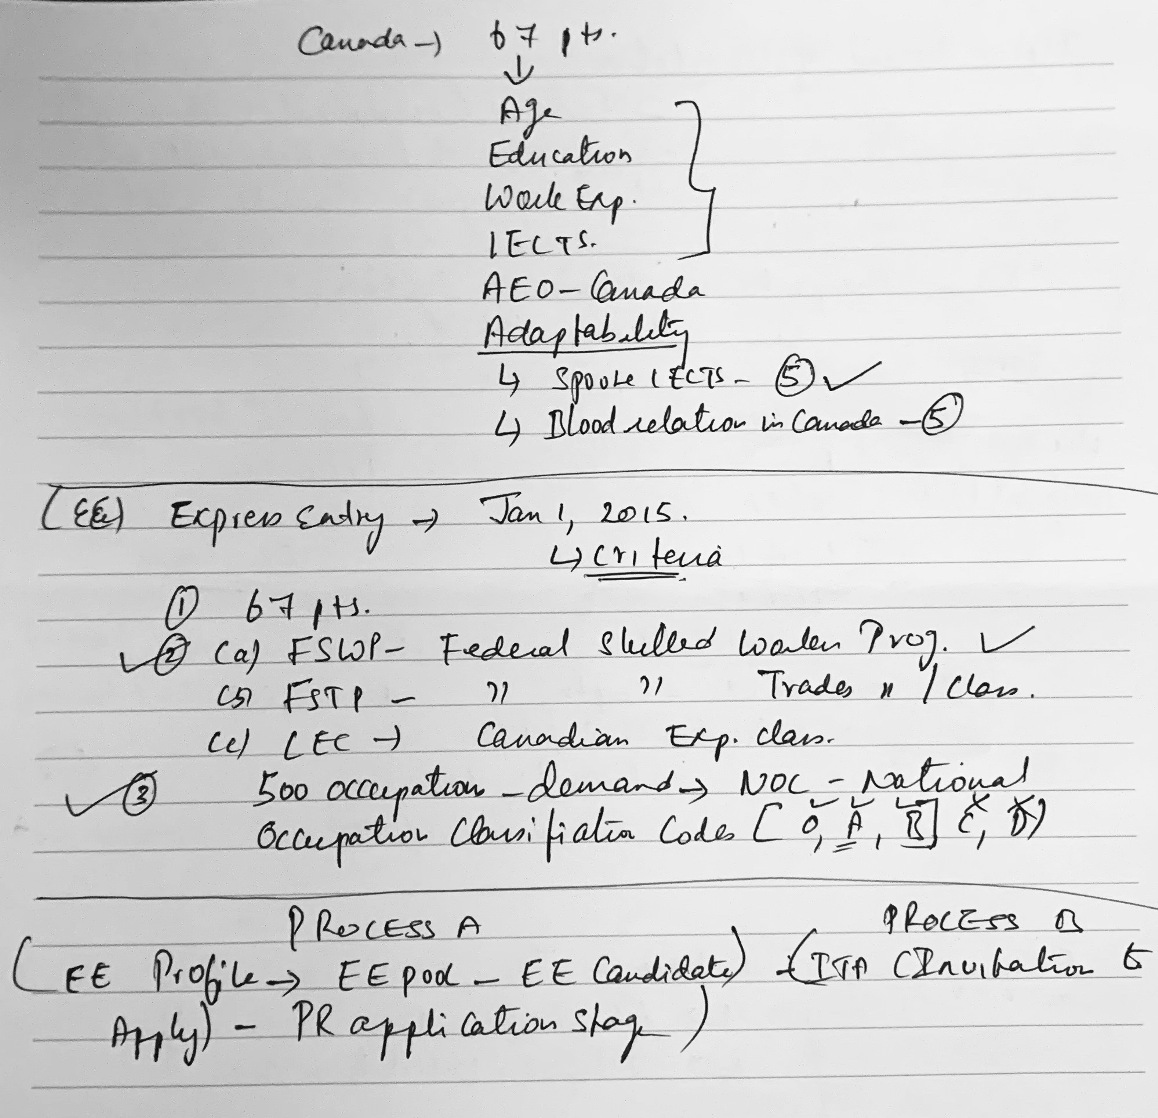 Canada → 67 pts.
↓
Age
Education
Work Exp.
IELTS.
AEO - Canada
Adaptability
↳ Spouse IELTS - ⑤ ✓
↳ Blood relation in Canada - ⑤
(EE) Express Entry → Jan 1, 2015.
↳ Criteria
① 67 pts.
✓② (a) FSWP - Federal Skilled Worker Prog. ✓
(b) FSTP - " " Trades " / Class.
(c) CEC → Canadian Exp. class.
✓③ 500 occupation - demand → NOC - National
Occupation Classification Codes [ 0, A, B] C, D)
PROCESS A PROCESS B
(EE Profile → EE pool - EE Candidate) - (ITA (Invitation to
Apply) - PR application stage)